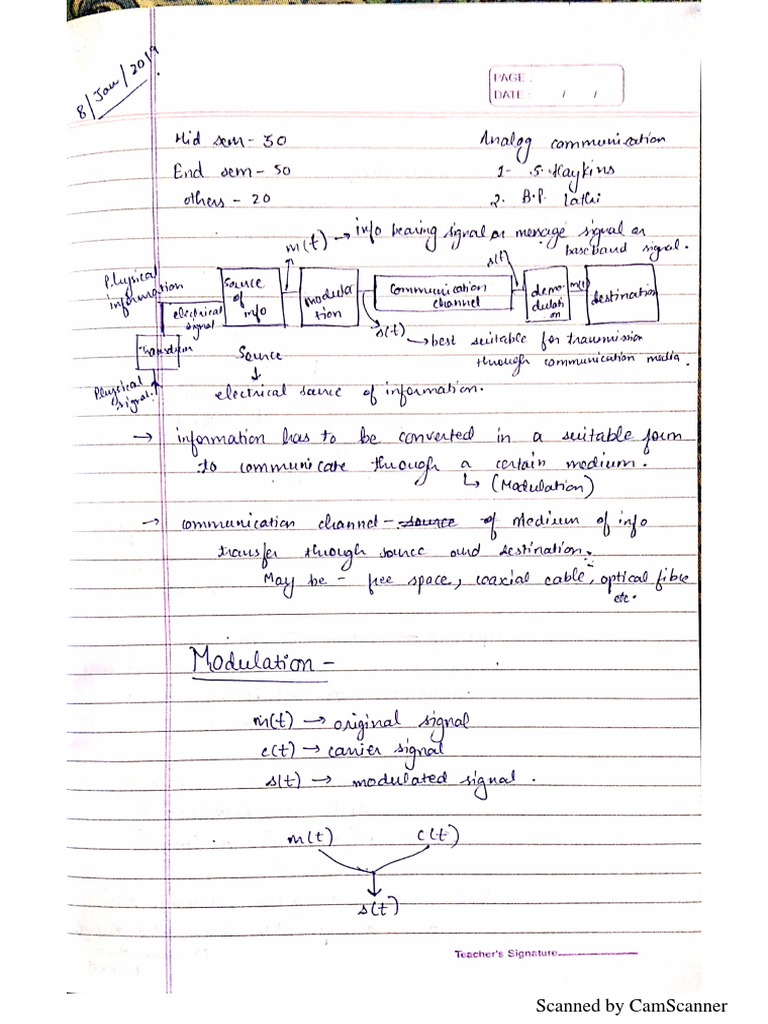 8/Jan/2019
PAGE :
DATE : / /
Mid sem - 30
Analog communication
End sem - 50
1- S. Haykins
others - 20
2. B.P. Lathi
m(t) → info bearing signal or message signal or
baseband signal.
s(t)
Physical
information
Source
of
info
modula
tion
communication
channel
demo-
dulati
on
m(t)
destination
electrical
signal
s(t)
→ best suitable for transmission
through communication media.
Physical
signal.
Source
↓
electrical source of information.
→ information has to be converted in a suitable form
to communicate through a certain medium.
↳ (Modulation)
→ communication channel - source of Medium of info
transfer through source and destination.
May be - free space, coaxial cable, optical fibre
etc.
Modulation -
m(t) → original signal
c(t) → carrier signal
s(t) → modulated signal.
m(t) c(t)
s(t)
Teacher's Signature
Scanned by CamScanner